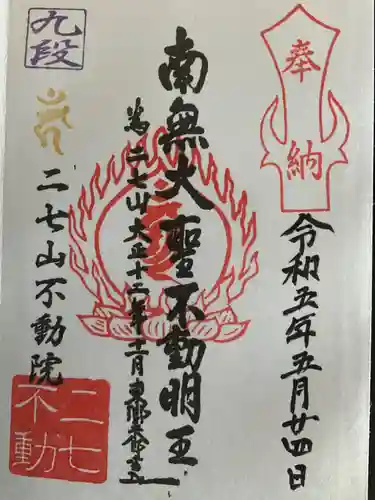 奉納
令和五年五月廿四日
南無大聖不動明王
二七山大正十二年十二月
九段
二七山不動院
二七不動